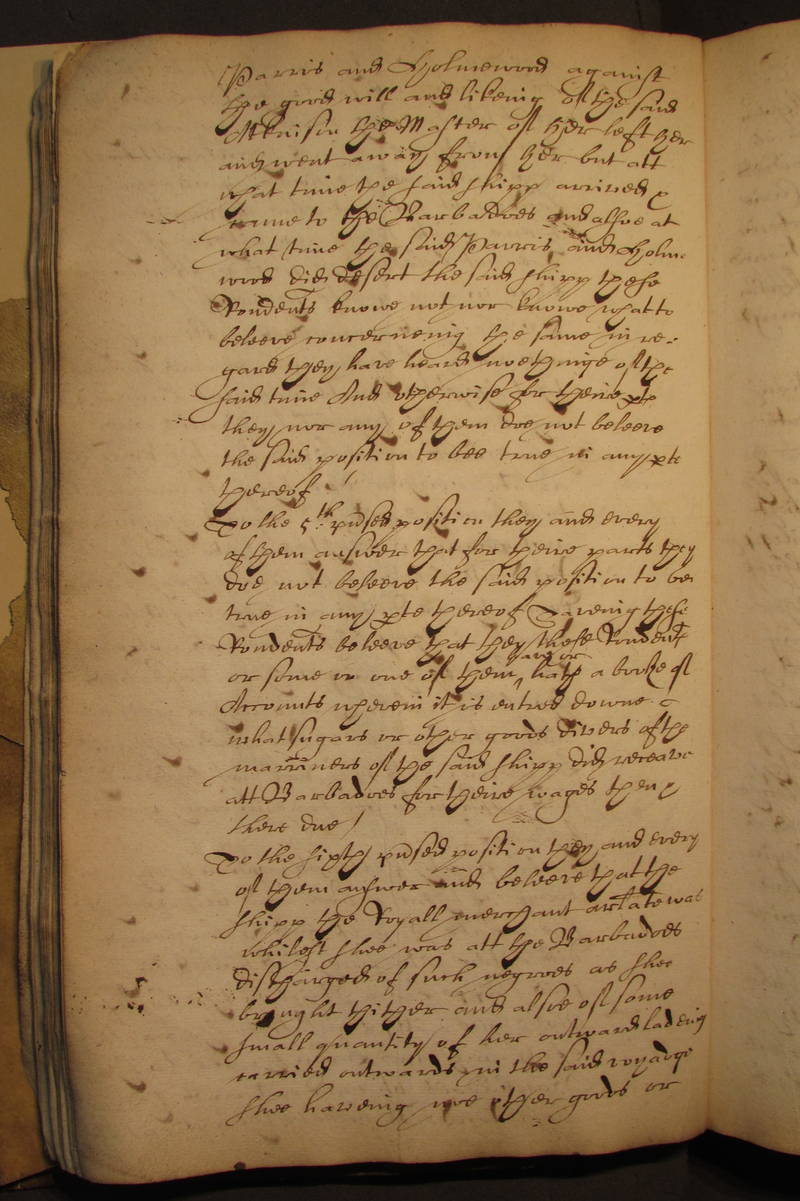 Parris and Holmewood against
the good will and likeing of the said
Atkinson the Master of her left her
and went away from her but att
what time the said shipp arrived &
came to the Barbadoes and alsoe at
what time the said Parris and Holm
wood did desert the said shipp these
Rondents knowe not nor knowe what to
beleeve concerneing the same in re-
gard they have heard noethinge of the
said time And otherwise for theire pte
they nor any of them doe not beleeve
the said position to bee true in any pte
thereof /
To the 5th: position they and every
of them answer that for theire parts they
doe not beleeve the said position to bee
true in any pte thereof Saveing these
Rondents beleeve that they these Rondents
or some or one of them have or hath a booke of
Accounts wherein it is entred downe
what sugars or other goods divers of the
marriners of the said shipp did receave
att Barbadoes for theire wages then
there due /
To the sixth position they and every
of them answer and beleeve that the
shipp the Royall merchant arlate was
whilest shee was att the Barbadoes
discharged of such negroes as shee
brought thither and alsoe of some
small quantity of her outward ladeing
carried outwards in the said voyadge
shee haveing noe other goods or